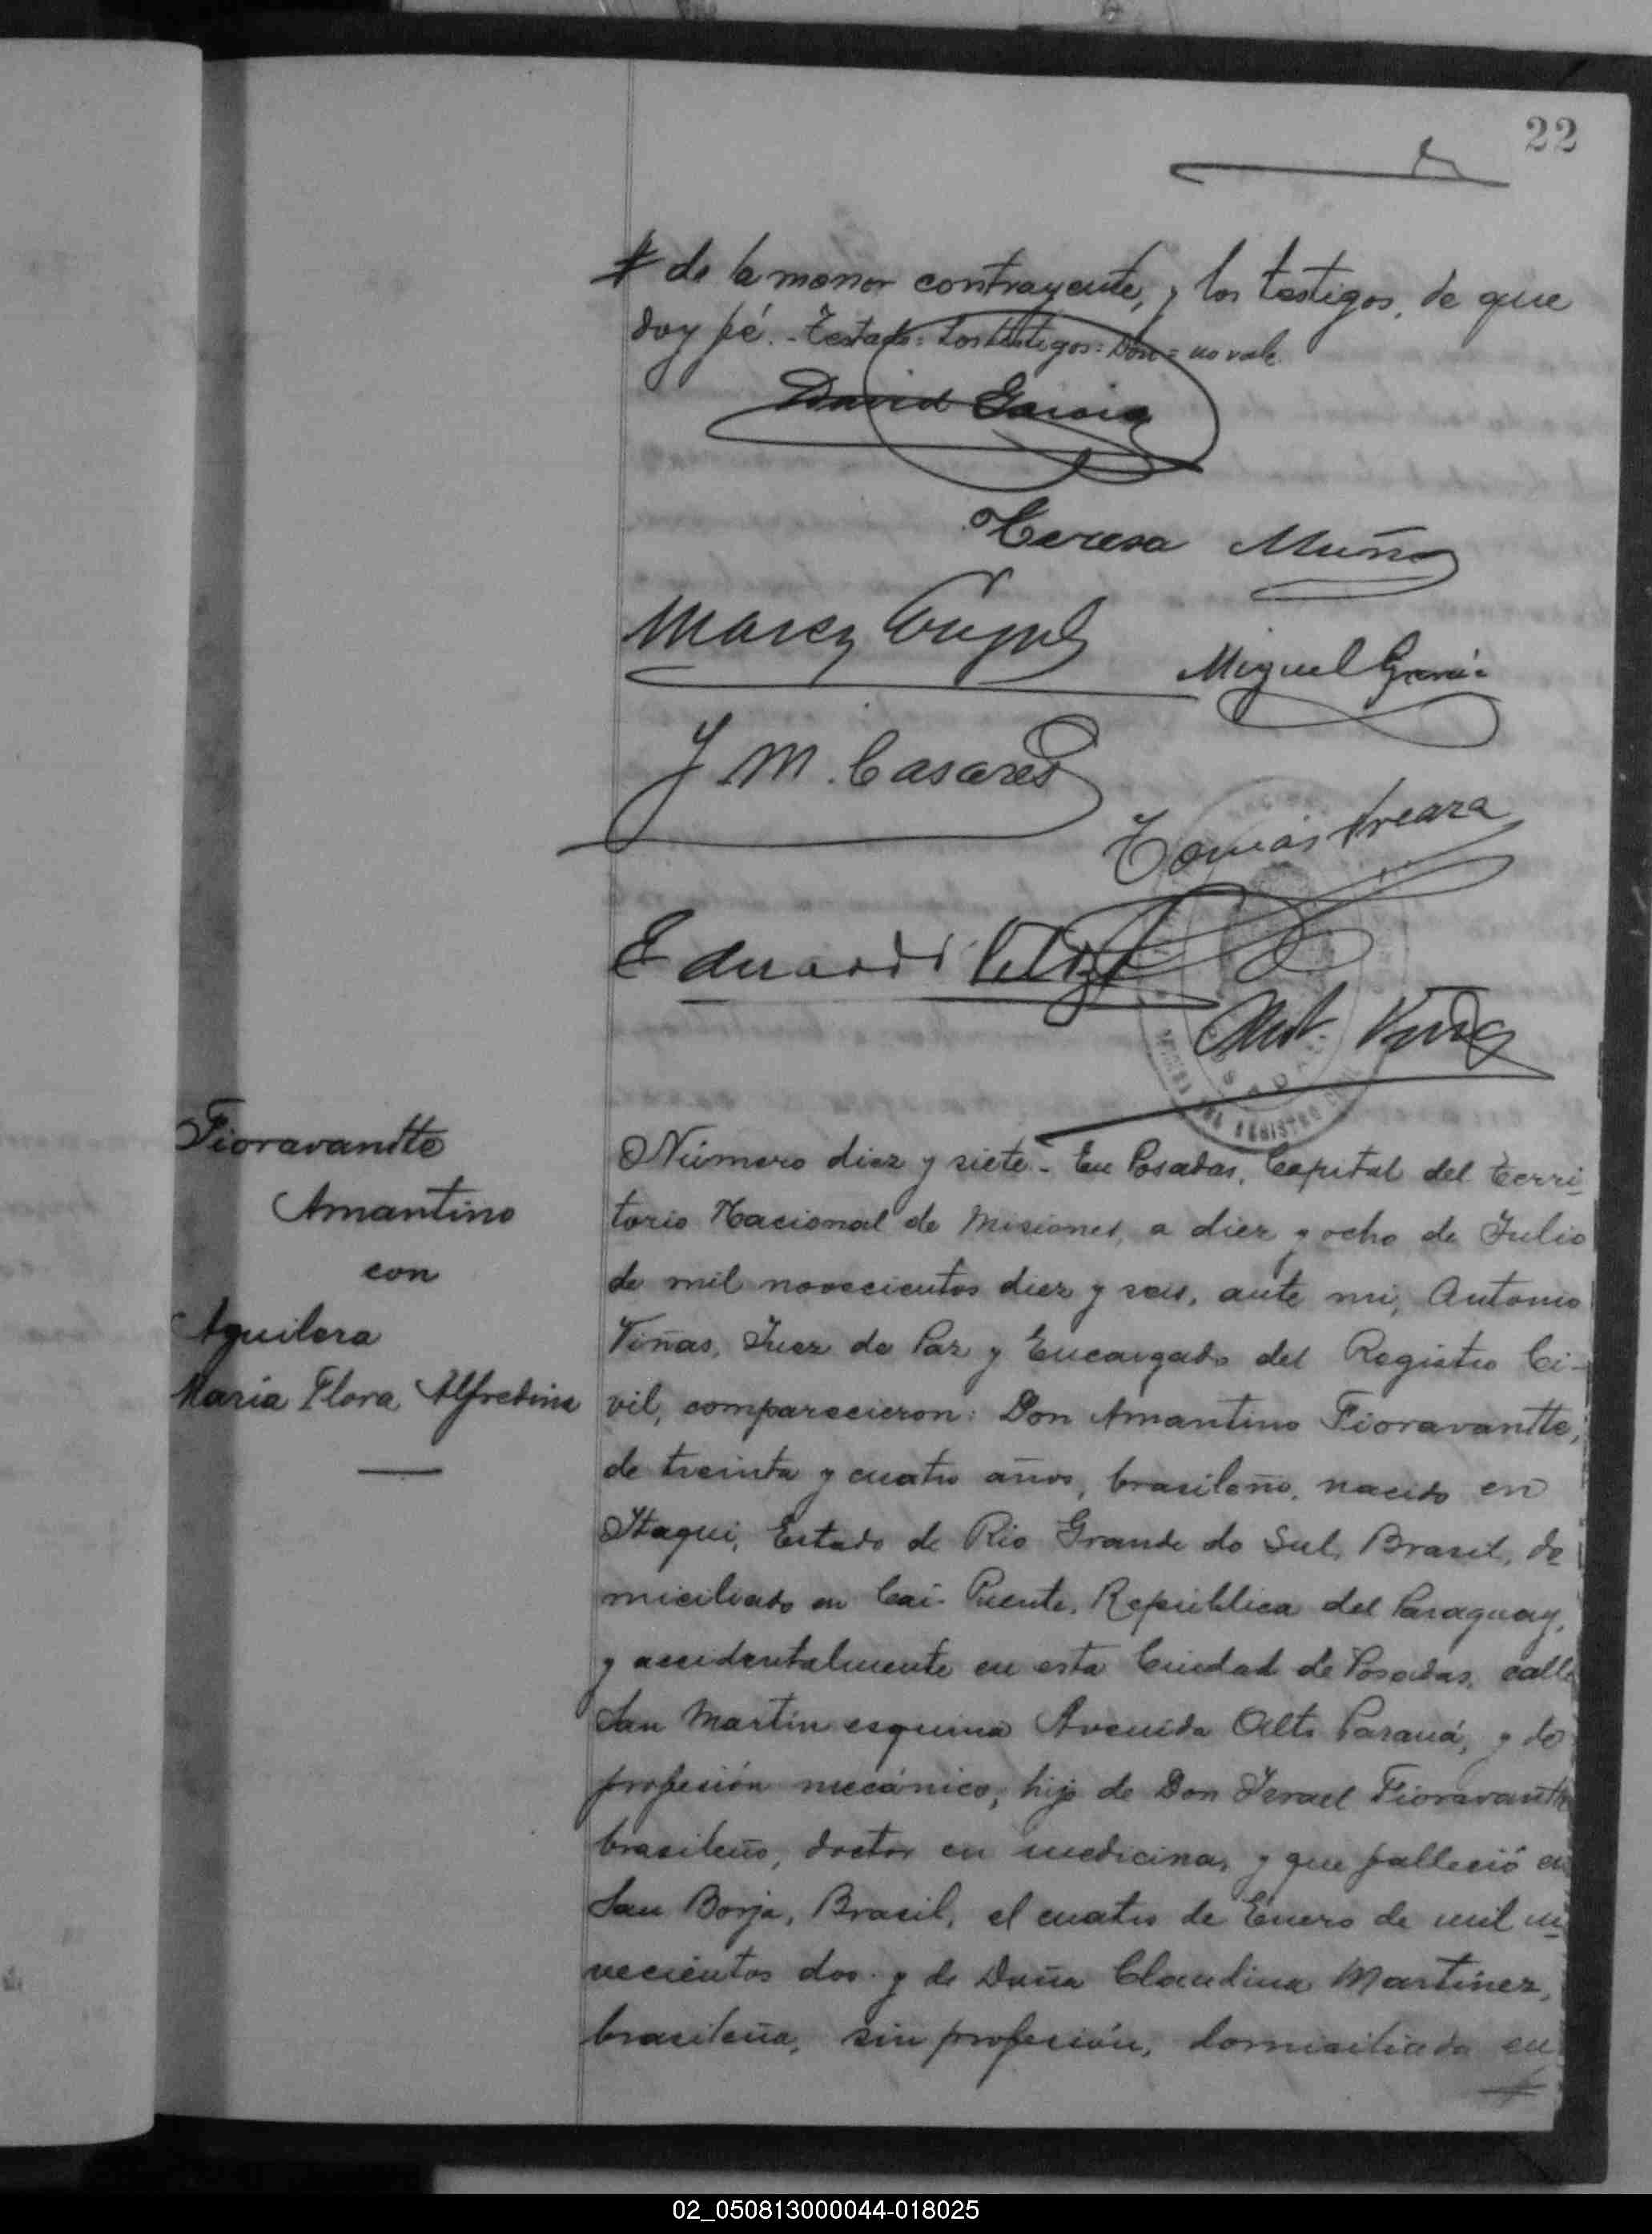 22
# de la menor contrayente, y los testigos, de que
doy fé. - Testado: los testigos: Don = no vale.
David Garcia
Teresa Muñoz
Miguel Garcia
J. M. Casares
Tomás
Eduardo
Ant. Viñas
POSADAS
REGISTRO
Fioravantte
Amantino
con
Aguilera
Maria Flora Alfredina
Número diez y siete - En Posadas, Capital del Terri-
torio Nacional de Misiones, a diez y ocho de Julio
de mil novecientos diez y seis, ante mi, Antonio
Viñas, Juez de Paz y Encargado del Registro Ci-
vil, comparecieron: Don Amantino Fioravantte,
de treinta y cuatro años, brasileño, nacido en
Itaqui, Estado de Rio Grande do Sul, Brasil, do
miciliado en Cai-Puente, República del Paraguay,
y accidentalmente en esta Ciudad de Posadas, calle
San Martin esquina Avenida Alto Paraná, y de
profesión mecánico; hijo de Don Israel Fioravantte
brasileño, doctor en medicina, y que falleció en
San Borja, Brasil, el cuatro de Enero de mil no
vecientos dos y de Doña Claudina Martinez,
brasileña, sin profesión, domiciliada en
#
02_050813000044-018025